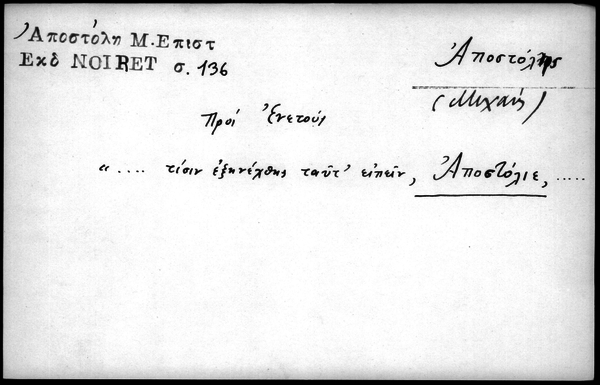 Ἀποστόλη Μ. Επιστ
Εκδ NOIRET σ. 136
Ἀποστόλης
(Μιχαήλ)
Πρός Ἐνετούς
“ .... τίσιν ἐξηνέχθης ταῦτ' εἰπεῖν, Ἀποστόλιε, .....